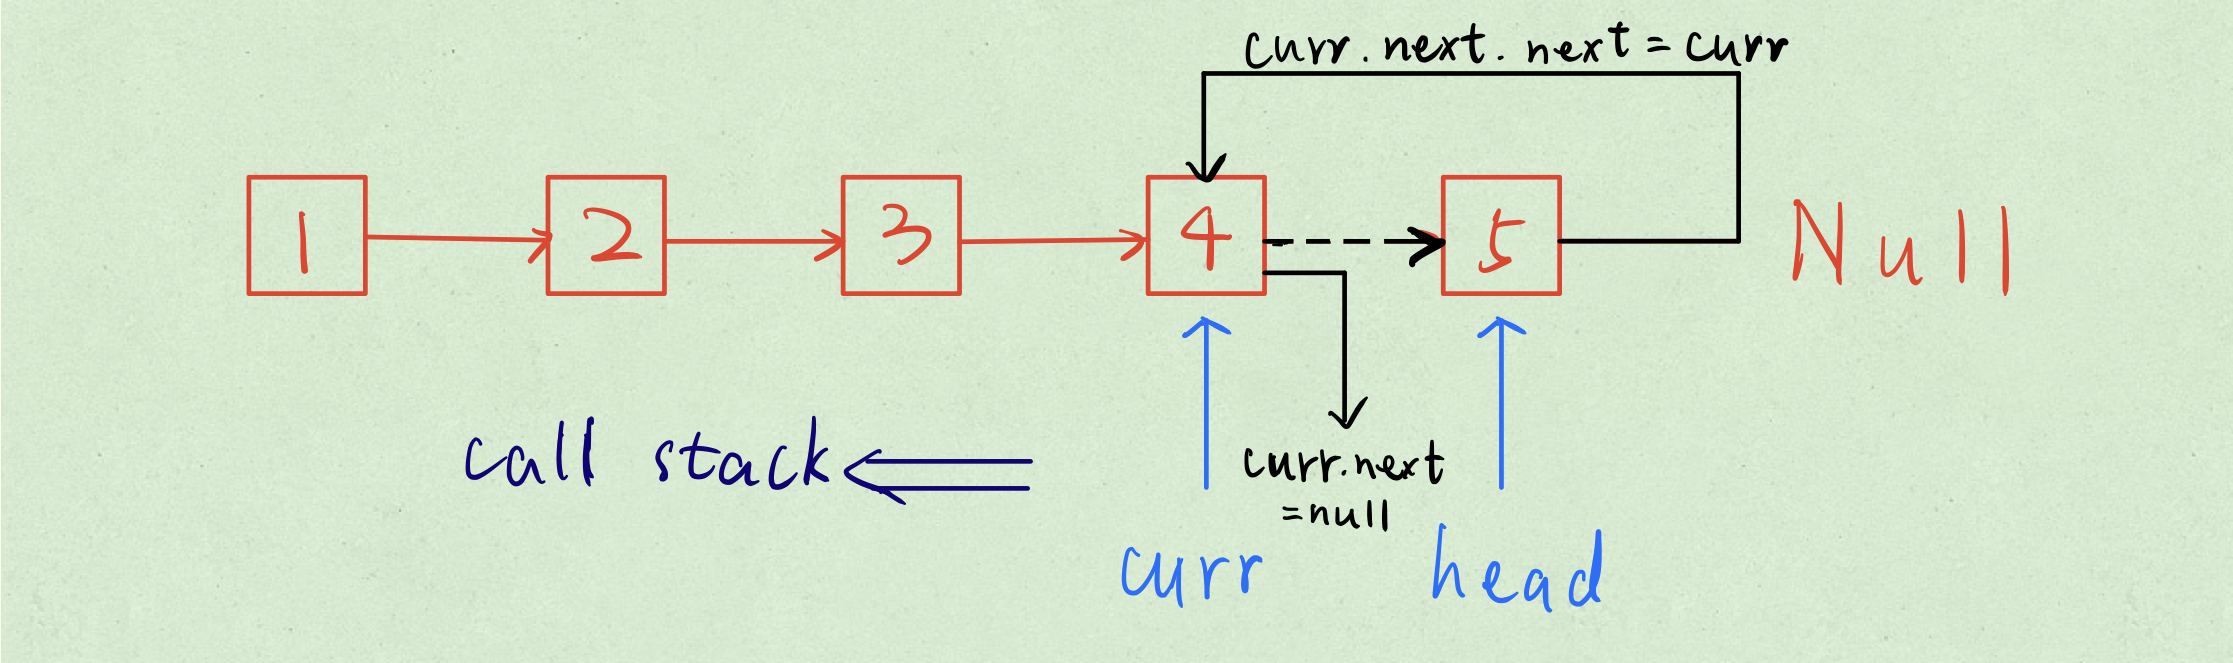 curr.next.next = curr
1 2 3 4 5 Null
call stack
curr.next
=null
curr head